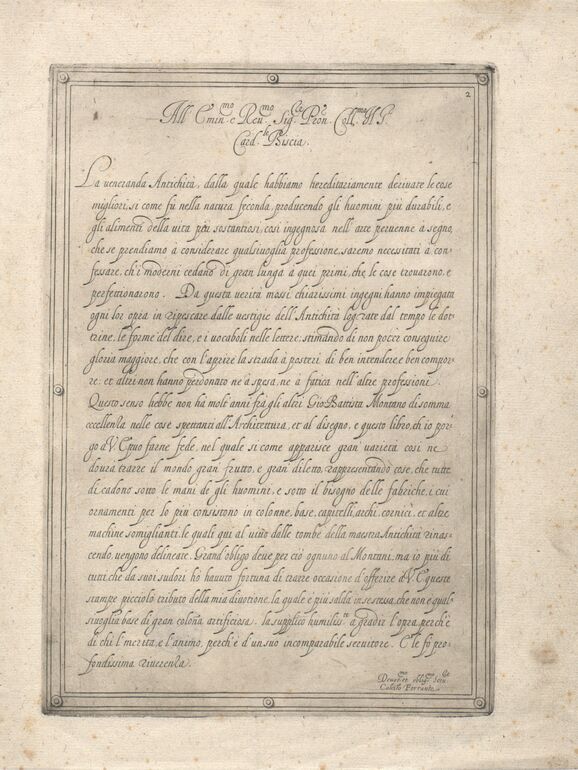 2
All Emin.mo e Reu.mo Sig.re Pron. Coll.mo Il S.
Card.le Biscia.
La ueneranda Antichità, dalla quale habbiamo hereditariamente deriuare le cose
migliori, si come fù nella natura feconda, producendo gli huomini più durabili, e
gli alimenti della uita più sostantiosi, così ingegnosa nell'arte peruenne à segno,
che se prendiamo à considerare qualsiuoglia professione, saremo necessitati à con-
fessare, ch'i moderni cedano di gran lunga a quei primi, che le cose trouarono, e
perfettionarono. Da questa uerità mossi chiarissimi ingegni hanno impiegata
ogni lor opra in ripescare dalle uestigie dell'Antichità logorate dal tempo le dot-
trine, le forme del dire, e i uocaboli nelle lettere; stimando di non poter conseguire
gloria maggiore, che con l'aprire la strada à posteri di ben intendere e ben compor-
re: et altri non hanno perdonato ne à spesa, ne à fatica nell'altre professioni.
Questo senso hebbe non hà molt'anni frà gli altri Gio: Battista Montano di somma
eccellenza nelle cose spettanti all'Architettura, et al disegno, e questo libro, ch'io por-
go à V.E. può farne fede, nel quale si come apparisce gran uarietà così ne
dourà trarre il mondo gran frutto, e gran diletto, rappresentando cose, che tutte
di cadono sotto le mani de gli huomini, e sotto il bisogno delle fabriche, i cui
ornamenti per lo più consistono in colonne, base, capitelli, archi, cornici, et altre
machine somiglianti, le quali qui al uiuo dalle tombe della maestra Antichità rinas-
cendo, uengono delineate. Grand'obligo deue per ciò ognuno al Montani, ma io più di
tutti, che da suoi sudori hò hauuto fortuna di trarre occasione d'offerire à V.E. queste
stampe picciolo tributo della mia diuotione, la quale è più salda in se stessa, che non è qual-
siuoglia base di gran colona artificiosa. la supplico humilis.te à gradir l'opra perch'è
di chi l'merita, e l'animo, perch'è d'un suo incomparabile seruitore. E le fò pro-
fondissima riuerenza.
Deuot.mo et oblig.mo Seru.re
Calisto Ferrante.